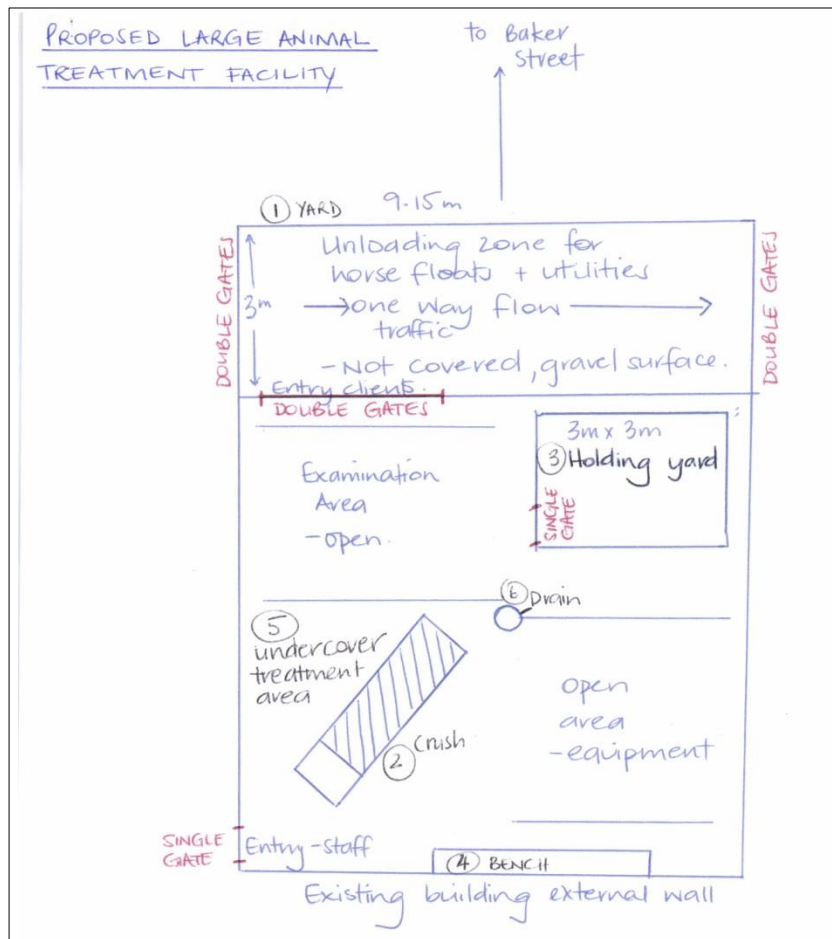 PROPOSED LARGE ANIMAL
TREATMENT FACILITY
to Baker
Street
1 YARD
9.15m
DOUBLE GATES
3m
Unloading zone for
horse floats + utilities
one way flow
traffic
- Not covered, gravel surface.
DOUBLE GATES
Entry clients.
DOUBLE GATES
Examination
Area
- open.
3m x 3m
3 Holding yard
SINGLE
GATE
6 Drain
5
undercover
treatment
area
2 Crush
open
area
- equipment
SINGLE
GATE
Entry - staff
4 BENCH
Existing building external wall